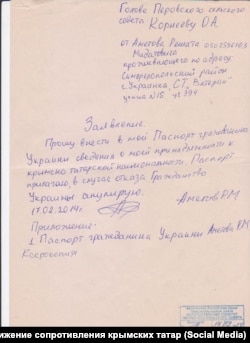 Голове Перовского сельского
совета Корнееву О.А.
от Аметова Решата
проживающего по адресу:
Симферопольский район
с. Украинка,
улица №15
Заявление
Прошу внести в мой Паспорт гражданина
Украины сведения о моей принадлежности к
крымско татарской национальности. Паспорт
прилагаю, в случае отказа Гражданство
Украины аннулирую.
17.02.2014г. Аметов Р.М
Приложение:
1. Паспорт гражданина Украины Аметов Р.М
Ксерокопия
ижение сопротивления крымских татар (Social Media)